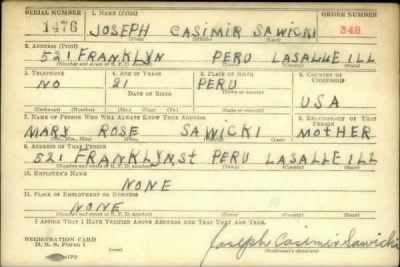 SERIAL NUMBER 1. NAME (Print) ORDER NUMBER
1476 JOSEPH CASIMIR SAWICKI 348
(First) (Middle) (Last)
2. ADDRESS (Print)
521 FRANKLYN PERU LASALLE ILL
(Number and street or R. F. D. number) (Town) (County) (State)
3. TELEPHONE 4. AGE IN YEARS 5. PLACE OF BIRTH 6. COUNTRY OF CITIZENSHIP
NO 21 PERU
DATE OF BIRTH
USA
(Exchange) (Number) (Mo.) (Day) (Yr.) (Town or county) (State or country)
7. NAME OF PERSON WHO WILL ALWAYS KNOW YOUR ADDRESS 8. RELATIONSHIP OF THAT PERSON
MARY ROSE SAWICKI MOTHER
(Mr., Mrs., Miss) (First) (Middle) (Last)
9. ADDRESS OF THAT PERSON
521 FRANKLYN ST PERU LASALLE ILL
(Number and street or R. F. D. number) (Town) (County) (State)
10. EMPLOYER'S NAME
NONE
11. PLACE OF EMPLOYMENT OR BUSINESS
NONE
(Number and street or R. F. D. number) (Town) (County) (State)
I AFFIRM THAT I HAVE VERIFIED ABOVE ANSWERS AND THAT THEY ARE TRUE.
REGISTRATION CARD
D. S. S. FORM 1
Joseph Casimir Sawicki
(Registrant's signature)